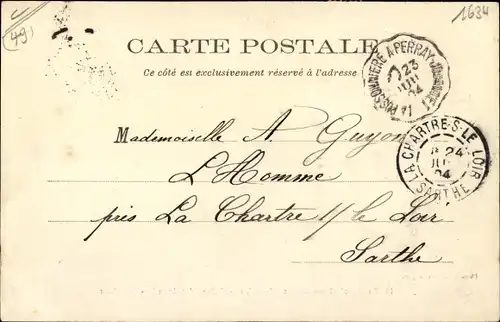 49
1634
CARTE POSTALE
Ce côté est exclusivement réservé à l'adresse
23
JUIL
04
Mademoiselle A. Guyon
L'Homme
près La Chartre s/ le Loir
Sarthe
LA CHARTRE-S-LE LOIR
24
04
SARTHE